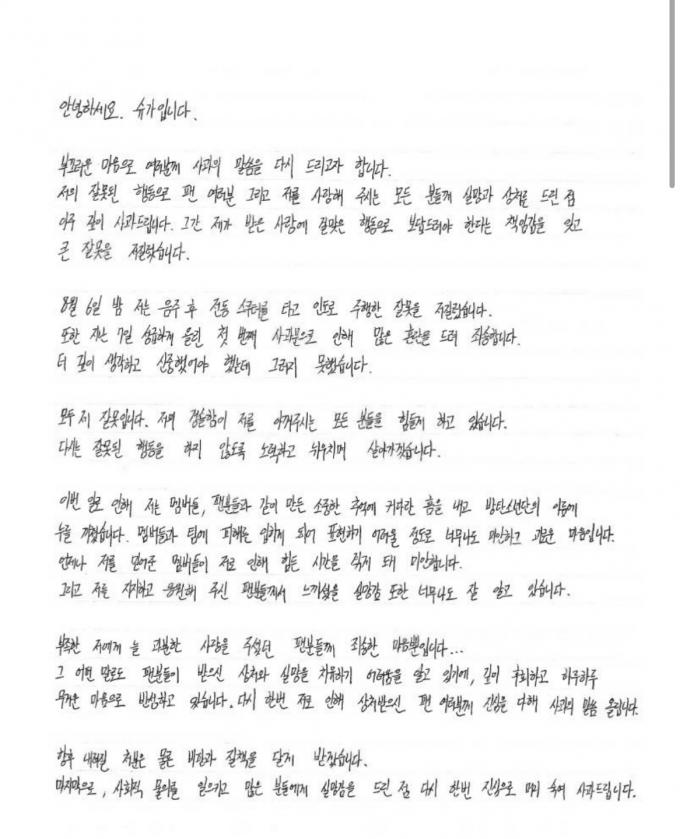 안녕하세요. 슈가입니다.
부끄러운 마음으로 여러분께 사과의 말씀을 다시 드리고자 합니다.
저의 잘못된 행동으로 팬 여러분 그리고 저를 사랑해 주시는 모든 분들께 실망과 상처를 드린 점
아주 깊이 사과드립니다. 그간 제가 받은 사랑에 걸맞은 행동으로 보답드려야 한다는 책임감을 잊고
큰 잘못을 저질렀습니다.
8월 6일 밤 저는 음주 후 전동 스쿠터를 타고 인도로 주행한 잘못을 저질렀습니다.
또한 지난 7일 성급하게 올린 첫 번째 사과문으로 인해 많은 혼란을 드려 죄송합니다.
더 깊이 생각하고 신중했어야 했는데 그러지 못했습니다.
모두 저의 잘못입니다. 저의 경솔함이 저를 아껴주시는 모든 분들을 힘들게 하고 있습니다.
다시는 잘못된 행동을 하지 않도록 노력하고 뉘우치며 살아가겠습니다.
이번 일로 인해 저는 멤버들, 팬분들과 같이 만든 소중한 추억에 커다란 흠을 내고 방탄소년단의 이름에
누를 끼쳤습니다. 멤버들과 팀에 피해를 입히게 되어 표현하기 어려울 정도로 너무나도 미안하고 괴로운 마음입니다.
언제나 저를 믿어준 멤버들이 저로 인해 힘든 시간을 겪게 돼 미안합니다.
그리고 저를 지지하고 응원해 주신 팬분들께서 느끼셨을 실망감 또한 너무나도 잘 알고 있습니다.
부족한 저에게 늘 과분한 사랑을 주셨던 팬분들께 죄송한 마음뿐입니다...
그 어떤 말로도 팬분들이 받으신 상처와 실망을 치유하기 어려움을 알고 있기에, 깊이 후회하고 하루하루
무거운 마음으로 반성하고 있습니다. 다시 한번 저로 인해 상처받으신 팬 여러분께 진심을 다해 사과의 말씀 올립니다.
향후 내려질 처분은 물론 비판과 질책을 달게 받겠습니다.
마지막으로, 사회적 물의를 일으키고 많은 분들에게 실망감을 드린 점 다시 한번 진심으로 머리 숙여 사과드립니다.